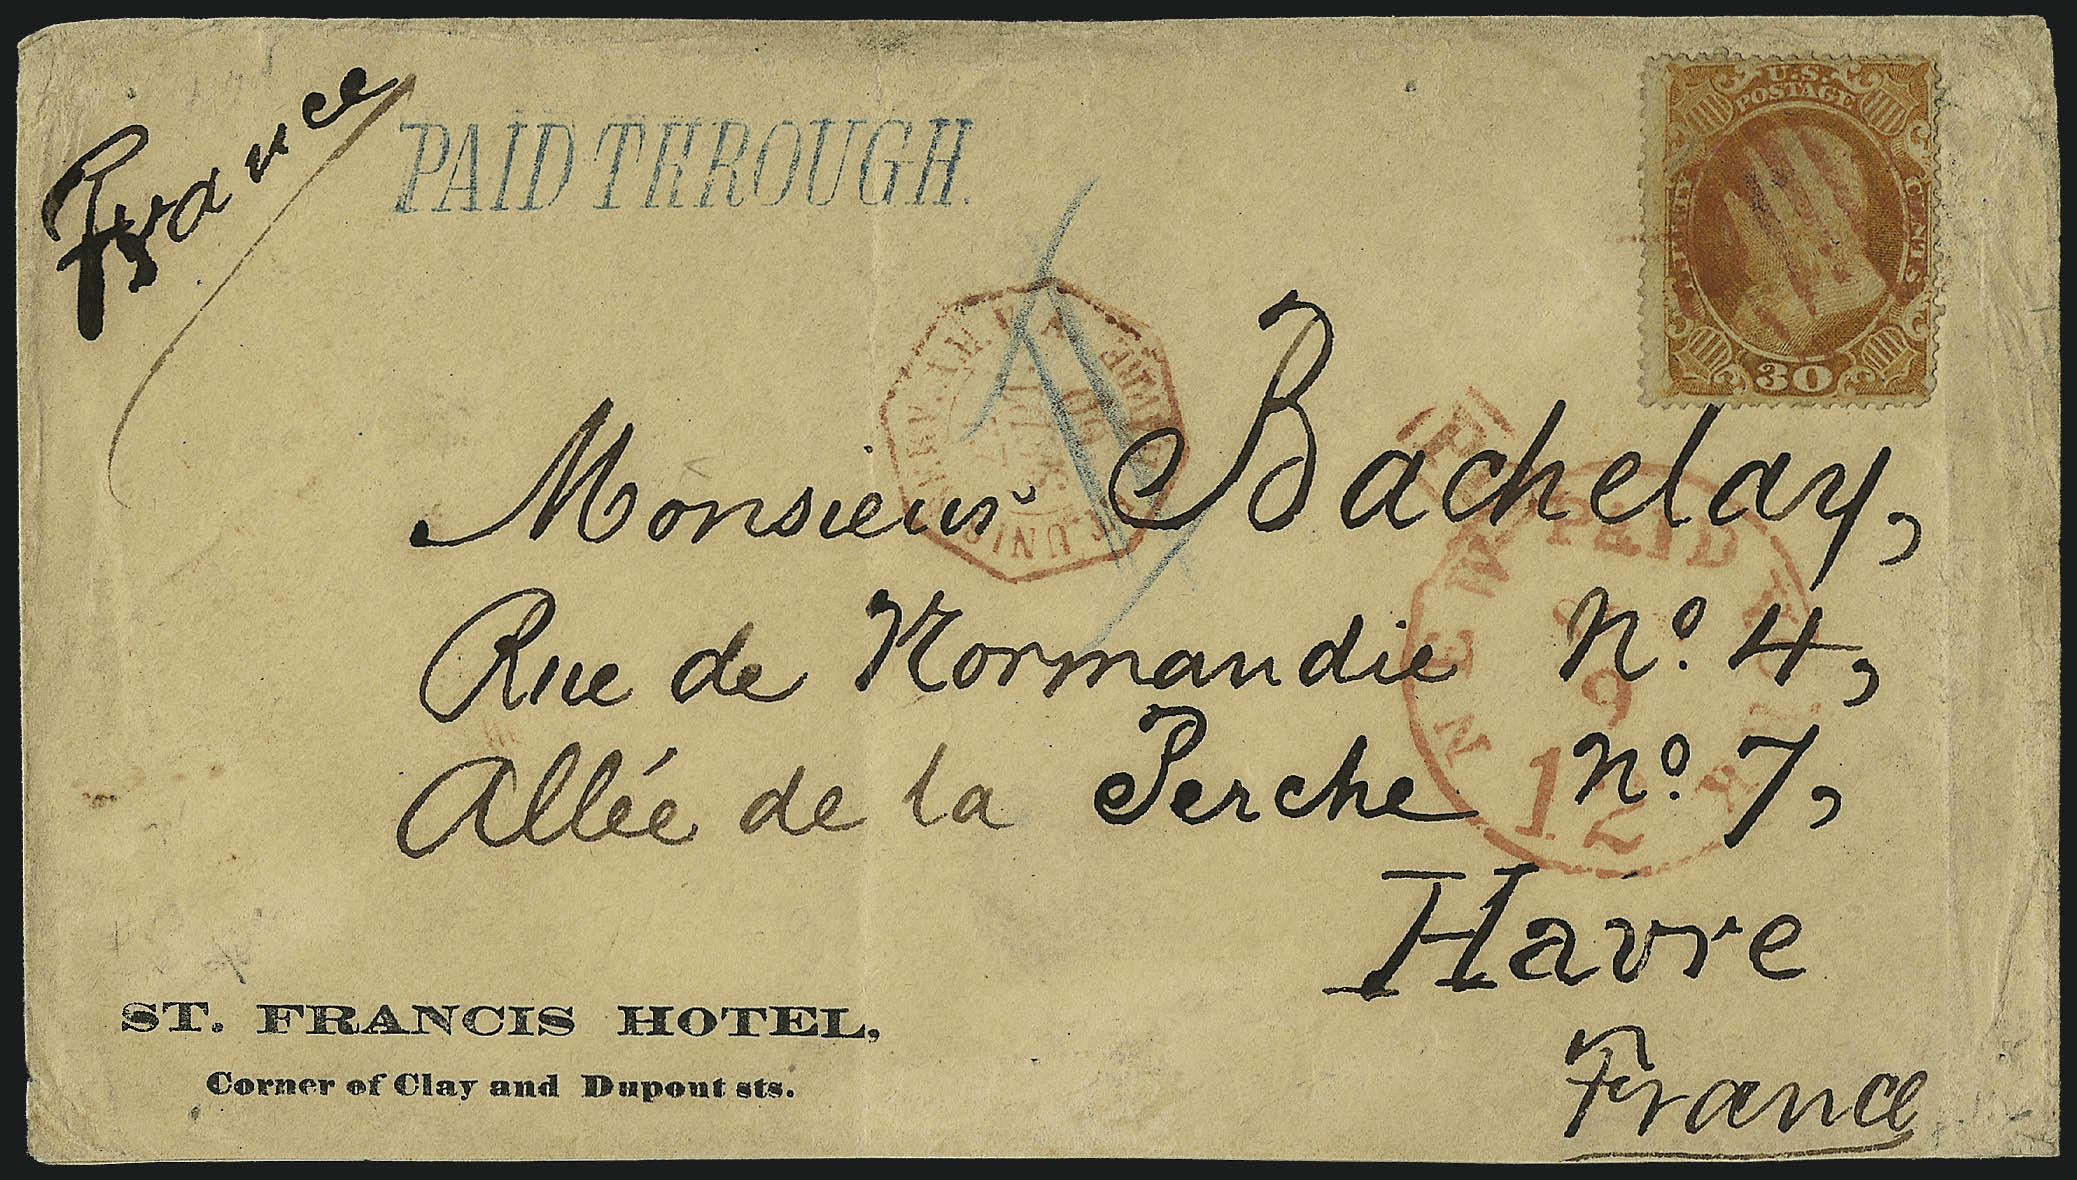 France
PAID THROUGH.
U.S.
POSTAGE
THIRTY
CENTS
30
Monsieur Bachelay,
Rue de Normandie No. 4,
Allée de la Perche No. 7,
Havre
France
NEW PAID YORK
9
12
ST. FRANCIS HOTEL,
Corner of Clay and Dupont sts.